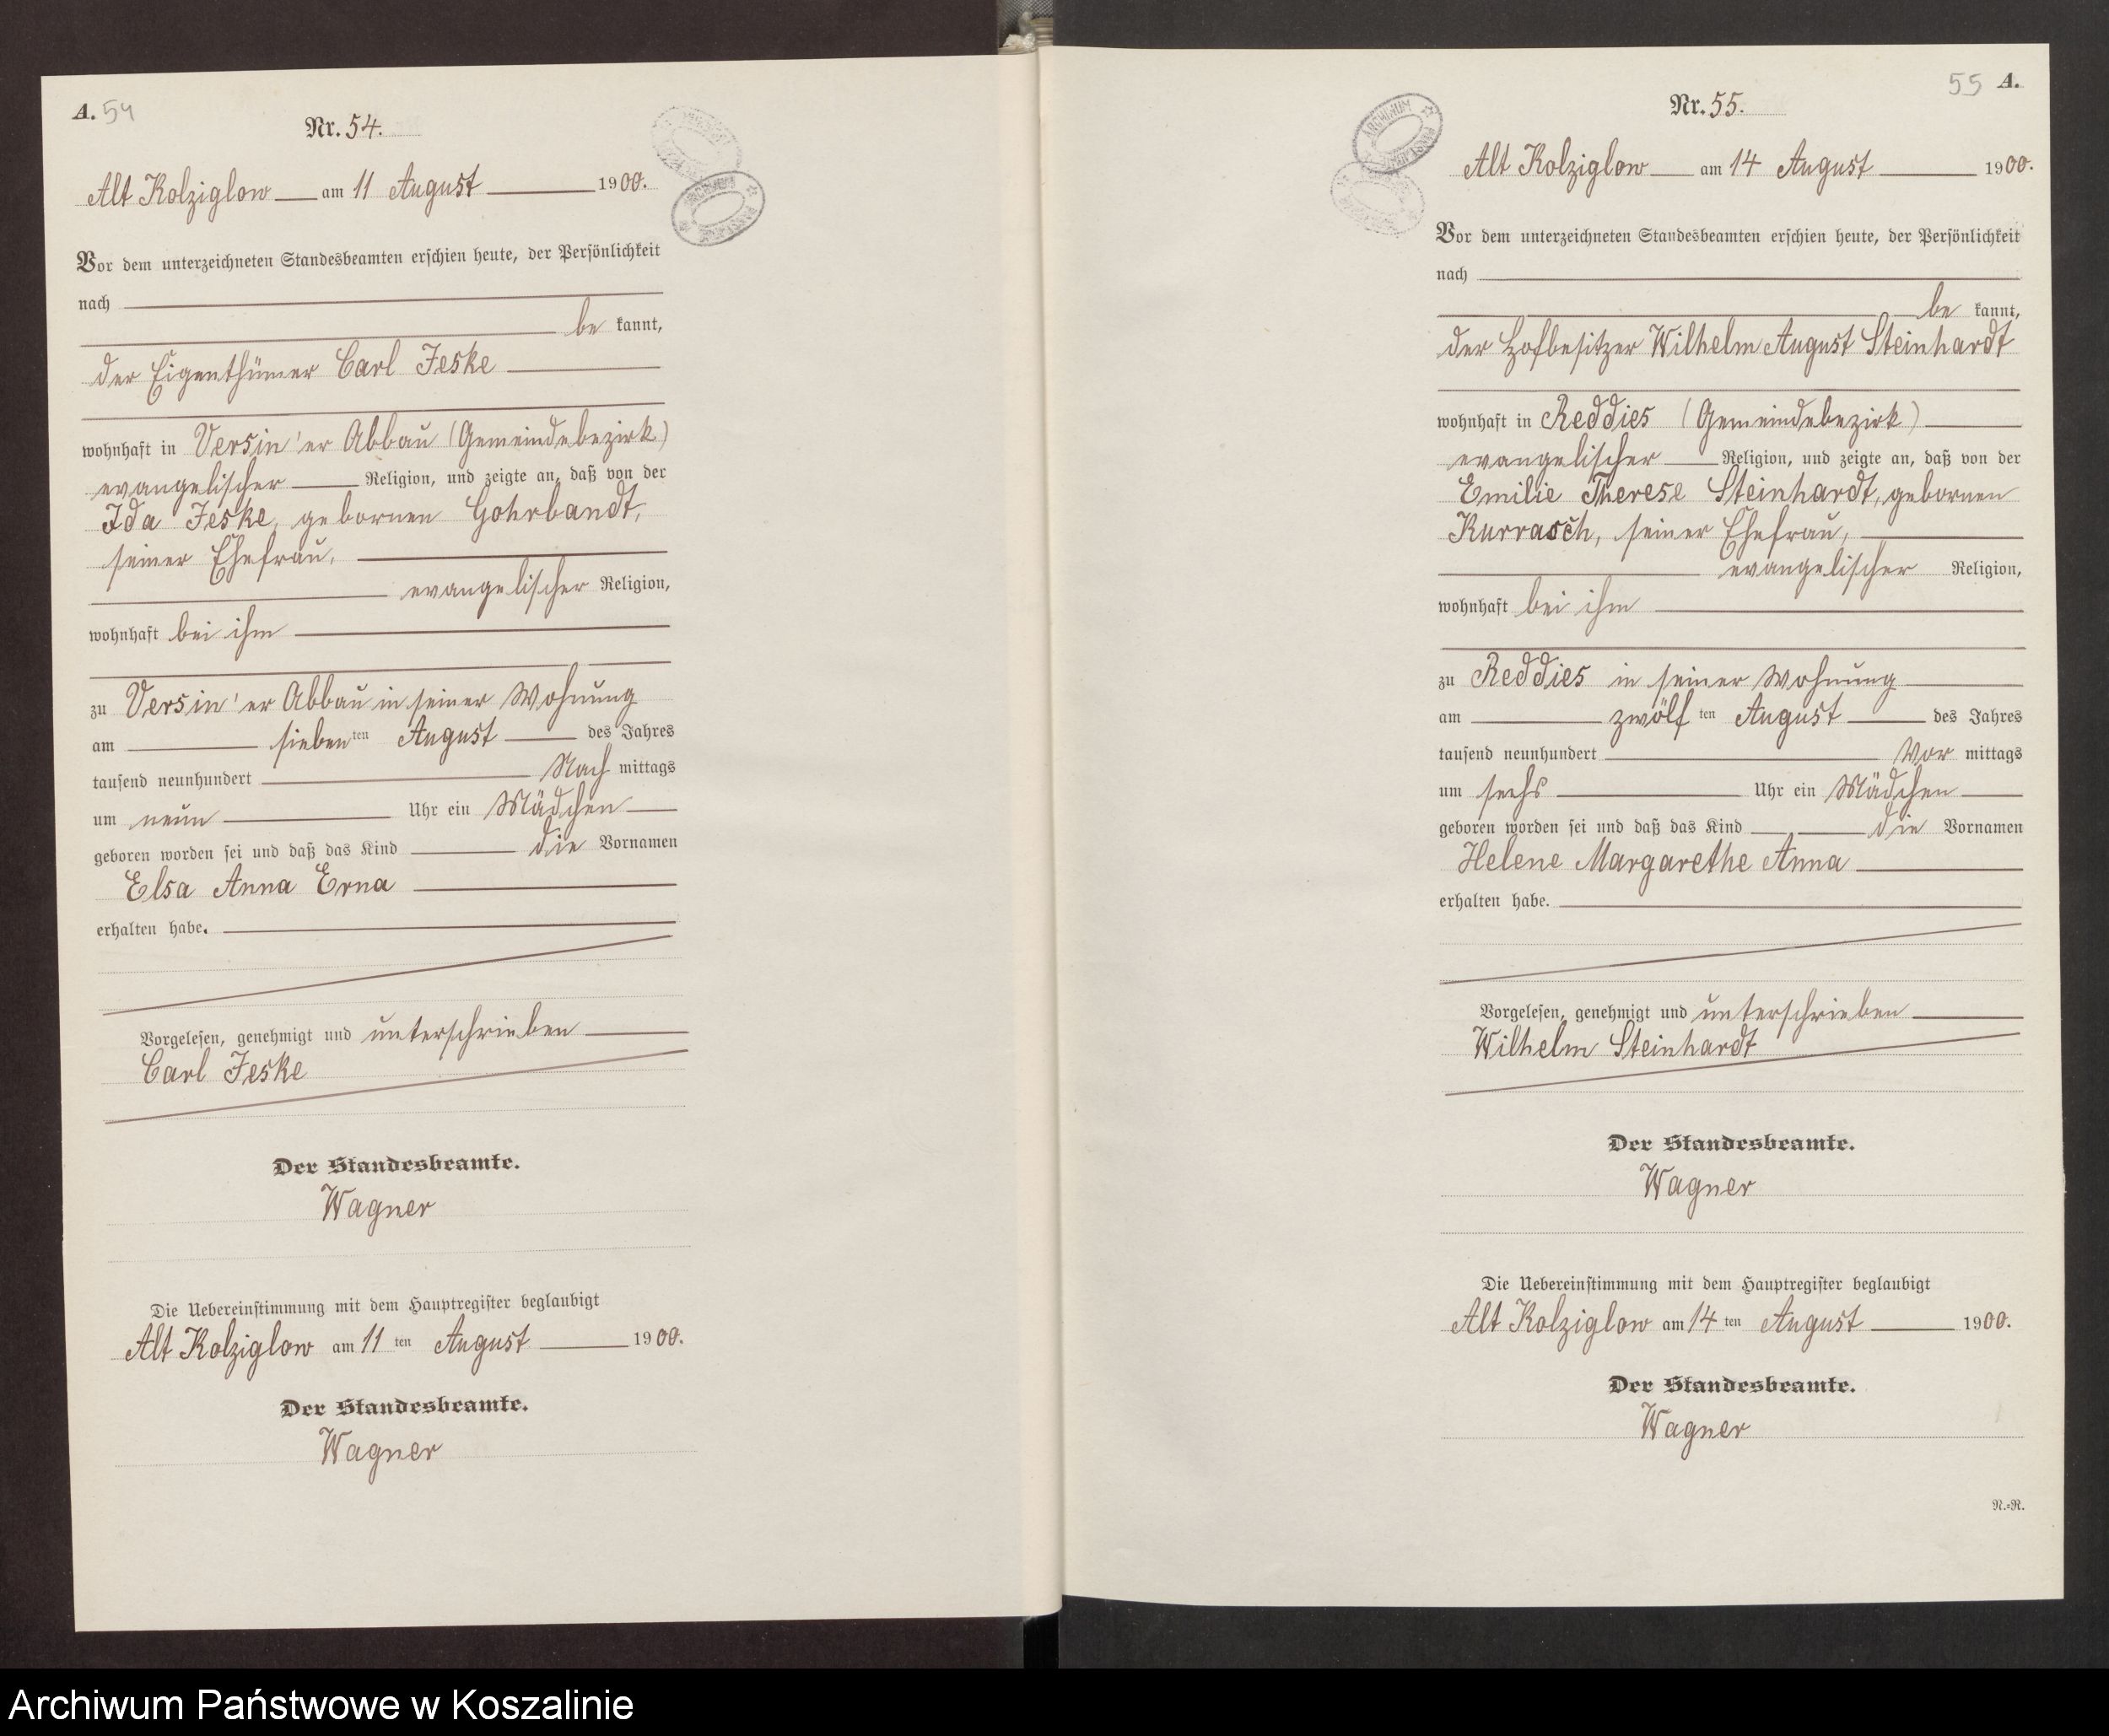 A. 54
Nr. 54.
Alt Kolziglow am 11 August 1900.
Vor dem unterzeichneten Standesbeamten erschien heute, der Persönlichkeit
nach
be kannt,
der Eigenthümer Carl Jeske
wohnhaft in Versin'er Abbau (Gemeindebezirk)
evangelischer Religion, und zeigte an, daß von der
Ida Jeske, gebornen Gohrbandt,
seiner Ehefrau,
evangelischer Religion,
wohnhaft bei ihm
zu Versin'er Abbau in seiner Wohnung
am sieben ten August des Jahres
tausend neunhundert Nach mittags
um neun Uhr ein Mädchen
geboren worden sei und daß das Kind die Vornamen
Elsa Anna Erna
erhalten habe.
Vorgelesen, genehmigt und unterschrieben
Carl Jeske
Der Standesbeamte.
Wagner
Die Uebereinstimmung mit dem Hauptregister beglaubigt
Alt Kolziglow am 11 ten August 1900.
Der Standesbeamte.
Wagner
ARCHIWUM
55 A.
Nr. 55.
Alt Kolziglow am 14 August 1900.
Vor dem unterzeichneten Standesbeamten erschien heute, der Persönlichkeit
nach
be kannt,
der Hofbesitzer Wilhelm August Steinhardt
wohnhaft in Reddies (Gemeindebezirk)
evangelischer Religion, und zeigte an, daß von der
Emilie Therese Steinhardt, gebornen
Kurrasch, seiner Ehefrau,
evangelischer Religion,
wohnhaft bei ihm
zu Reddies in seiner Wohnung
am zwölf ten August des Jahres
tausend neunhundert Vor mittags
um sechs Uhr ein Mädchen
geboren worden sei und daß das Kind die Vornamen
Helene Margarethe Anna
erhalten habe.
Vorgelesen, genehmigt und unterschrieben
Wilhelm Steinhardt
Der Standesbeamte.
Wagner
Die Uebereinstimmung mit dem Hauptregister beglaubigt
Alt Kolziglow am 14 ten August 1900.
Der Standesbeamte.
Wagner
N.=R.
ARCHIWUM
Archiwum Państwowe w Koszalinie